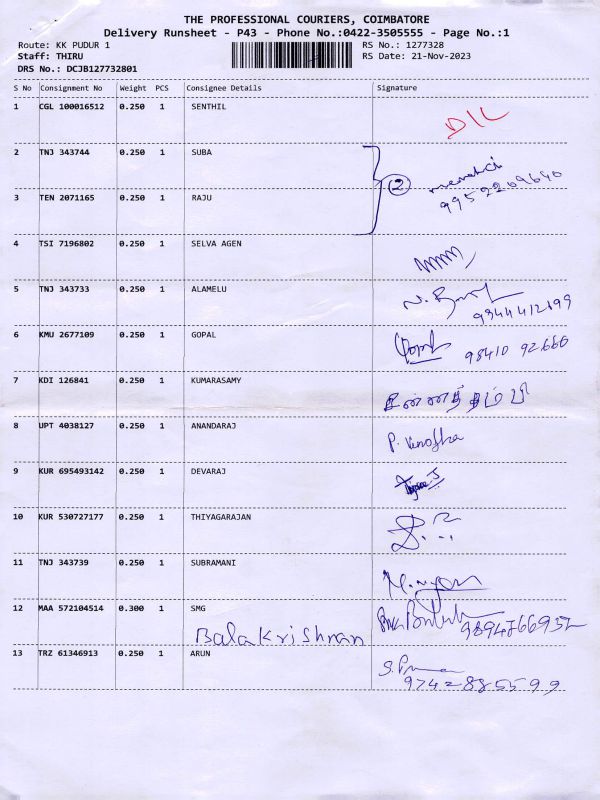 THE PROFESSIONAL COURIERS, COIMBATORE
Delivery Runsheet - P43 - Phone No.:0422-3505555 - Page No.:1
Route: KK PUDUR 1 RS No.: 1277328
Staff: THIRU RS Date: 21-Nov-2023
DRS No.: DCJB127732801
S No Consignment No Weight PCS Consignee Details Signature
1 CGL 100016512 0.250 1 SENTHIL
2 TNJ 343744 0.250 1 SUBA
2
9952209640
3 TEN 2071165 0.250 1 RAJU
4 TSI 7196802 0.250 1 SELVA AGEN
5 TNJ 343733 0.250 1 ALAMELU
6 KMU 2677109 0.250 1 GOPAL
98410 92666
7 KDI 126841 0.250 1 KUMARASAMY
8 UPT 4038127 0.250 1 ANANDARAJ
9 KUR 695493142 0.250 1 DEVARAJ
10 KUR 530727177 0.250 1 THIYAGARAJAN
11 TNJ 343739 0.250 1 SUBRAMANI
12 MAA 572104514 0.300 1 SMG
BalaKriShnan 9894766932
13 TRZ 61346913 0.250 1 ARUN
9742885599